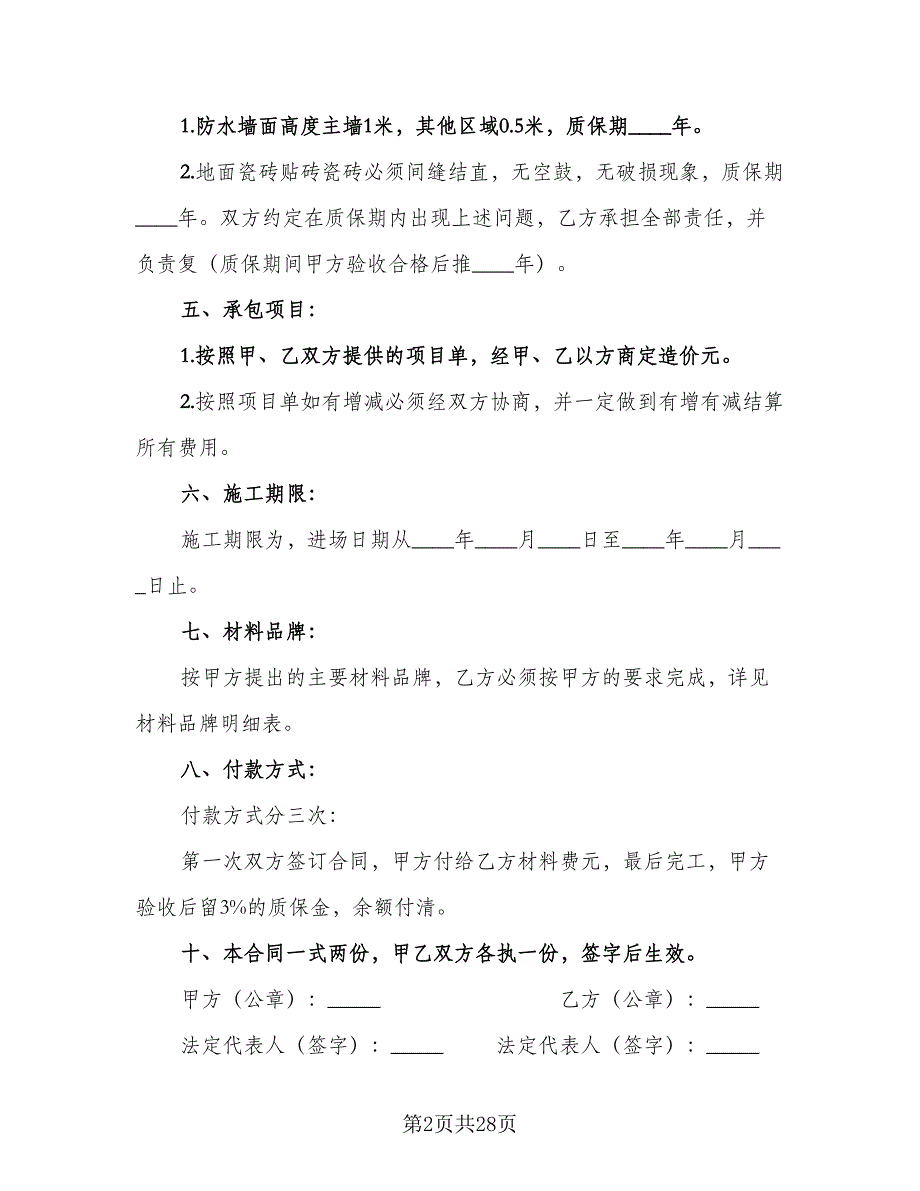 1.防水墙面高度主墙1米，其他区域0.5米，质保期____年。
2.地面瓷砖贴砖瓷砖必须间缝结直，无空鼓，无破损现象，质保期
____年。双方约定在质保期内出现上述问题，乙方承担全部责任，并
负责复（质保期间甲方验收合格后推____年）。
五、承包项目：
1.按照甲、乙双方提供的项目单，经甲、乙以方商定造价元。
2.按照项目单如有增减必须经双方协商，并一定做到有增有减结算
所有费用。
六、施工期限：
施工期限为，进场日期从____年____月____日至____年____月___
_日止。
七、材料品牌：
按甲方提出的主要材料品牌，乙方必须按甲方的要求完成，详见
材料品牌明细表。
八、付款方式：
付款方式分三次：
第一次双方签订合同，甲方付给乙方材料费元，最后完工，甲方
验收后留3%的质保金，余额付清。
十、本合同一式两份，甲乙双方各执一份，签字后生效。
甲方（公章）：_____ 乙方（公章）：_____
法定代表人（签字）：_____ 法定代表人（签字）：_____
第2页共28页